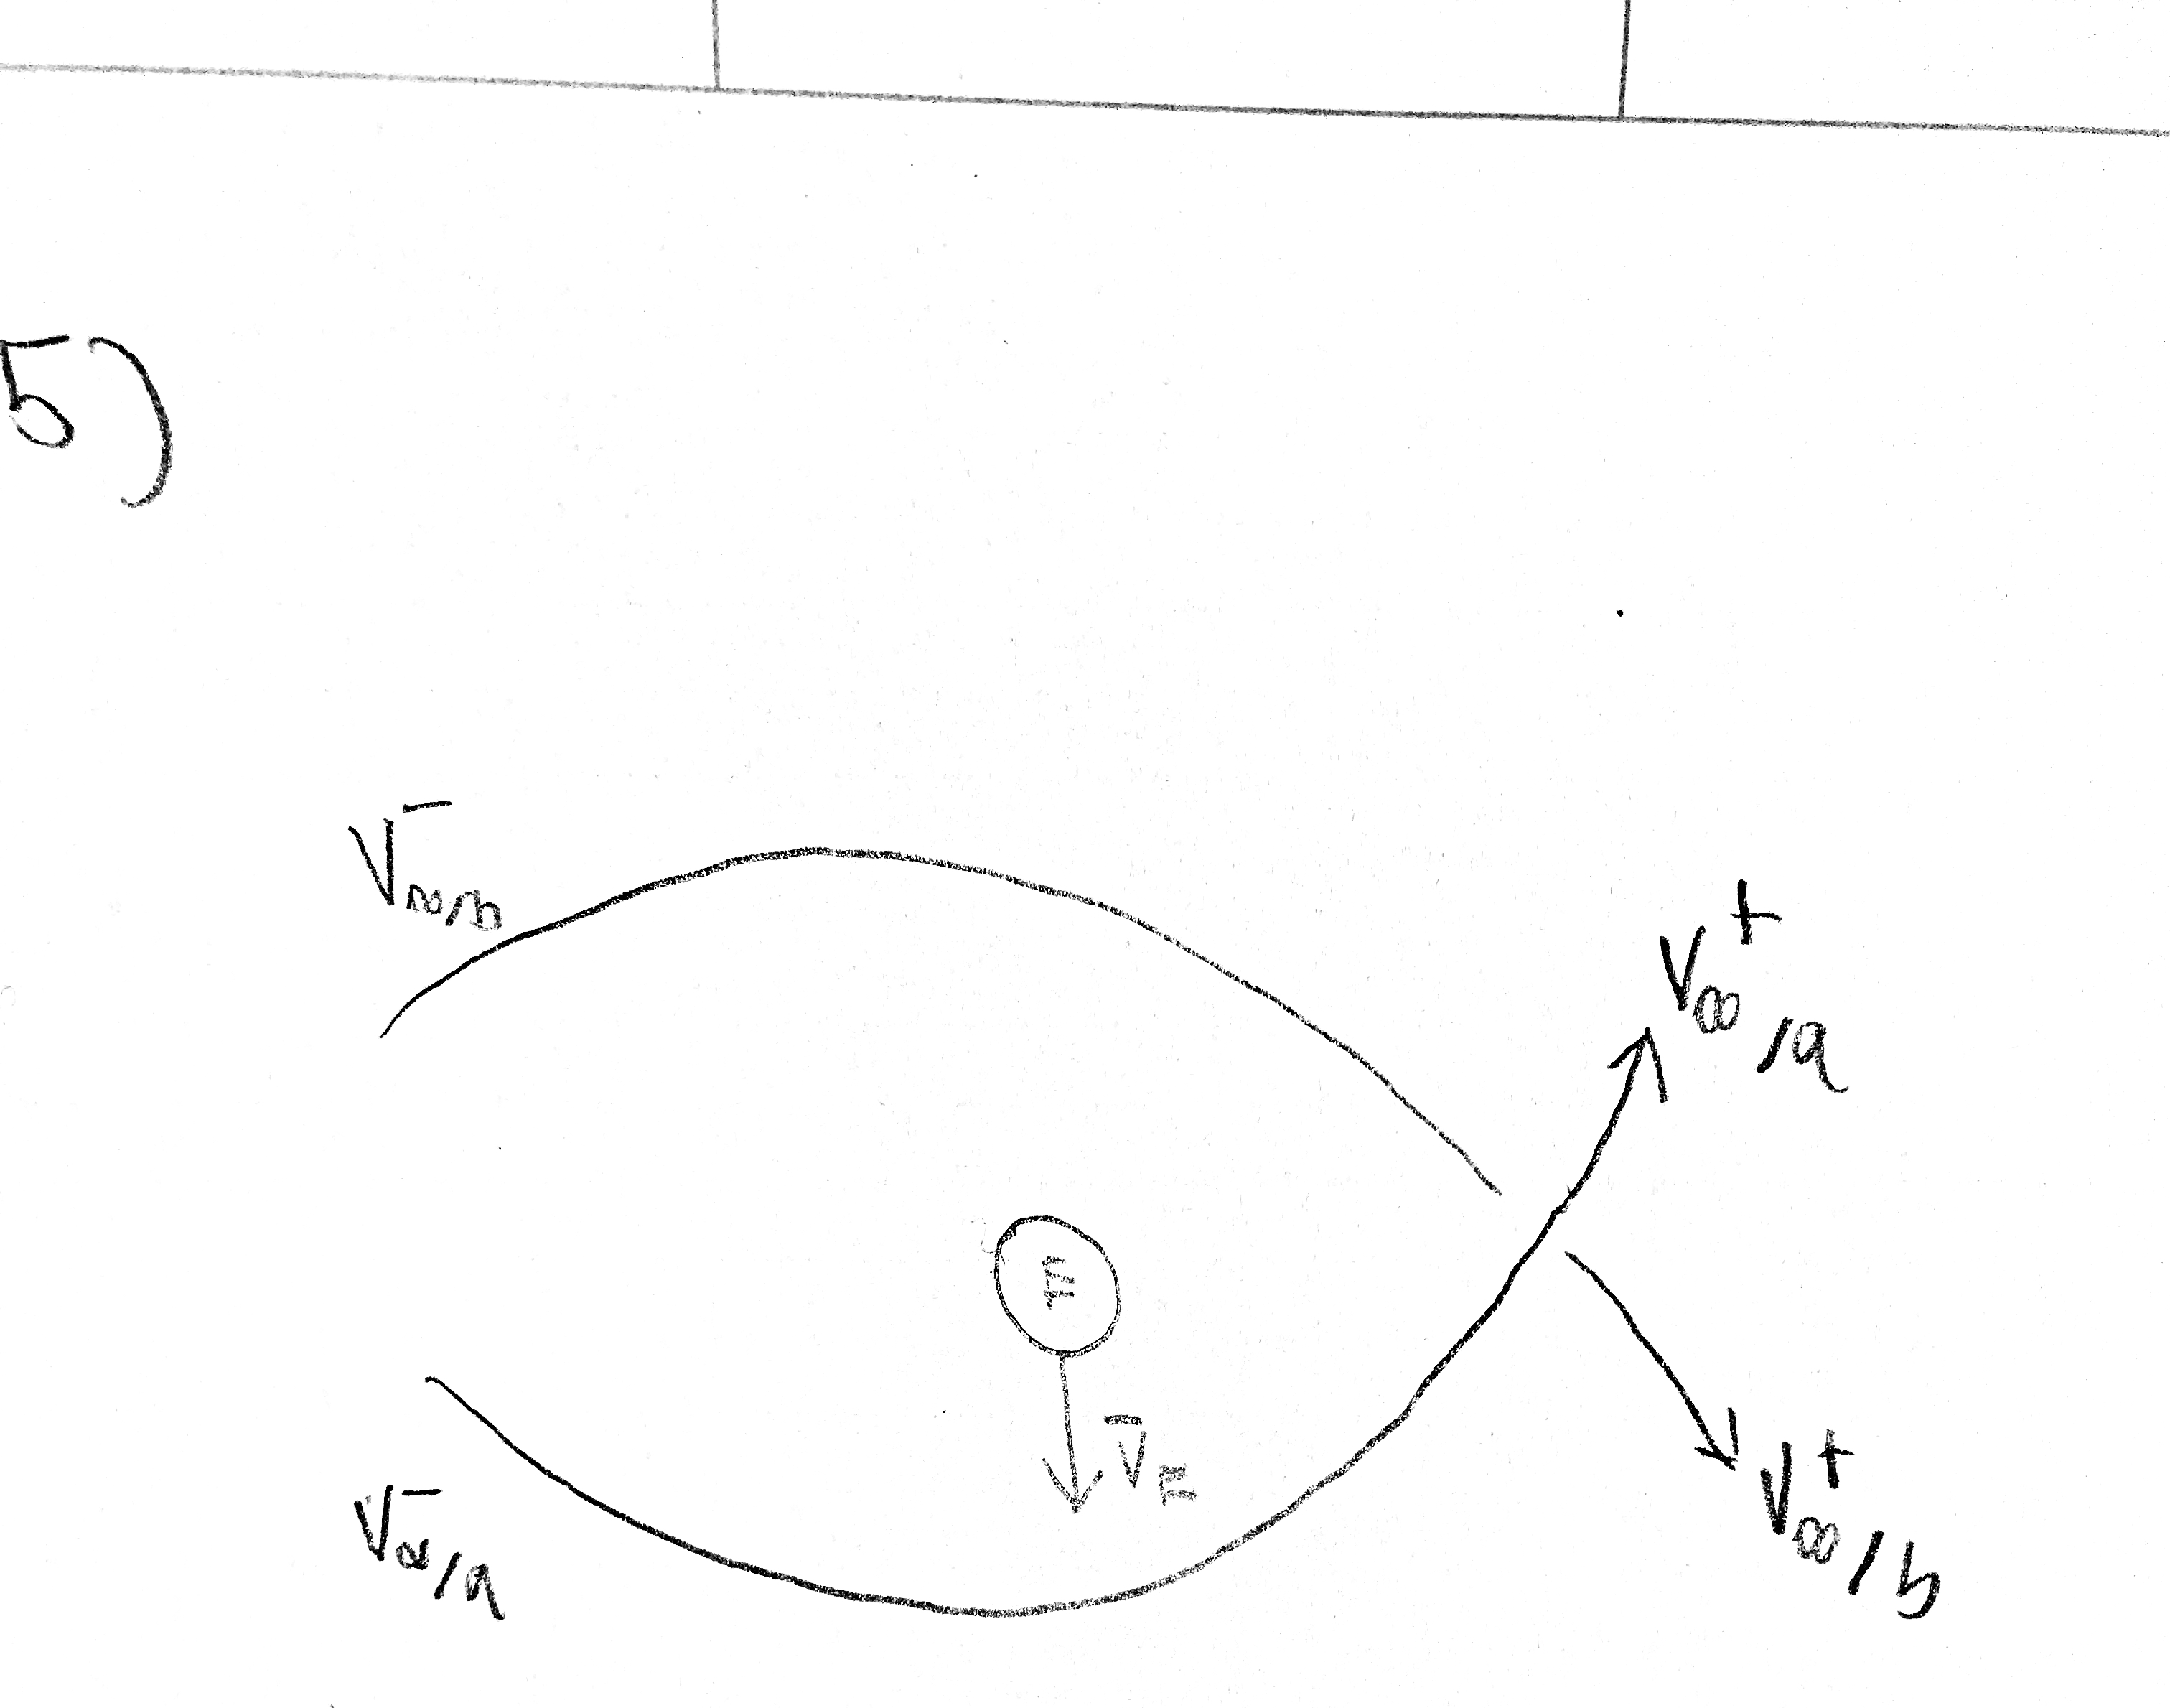 5)
V⁻∞/b
V⁺∞/a
E
V̄E
V⁺∞/b
V⁻∞/a